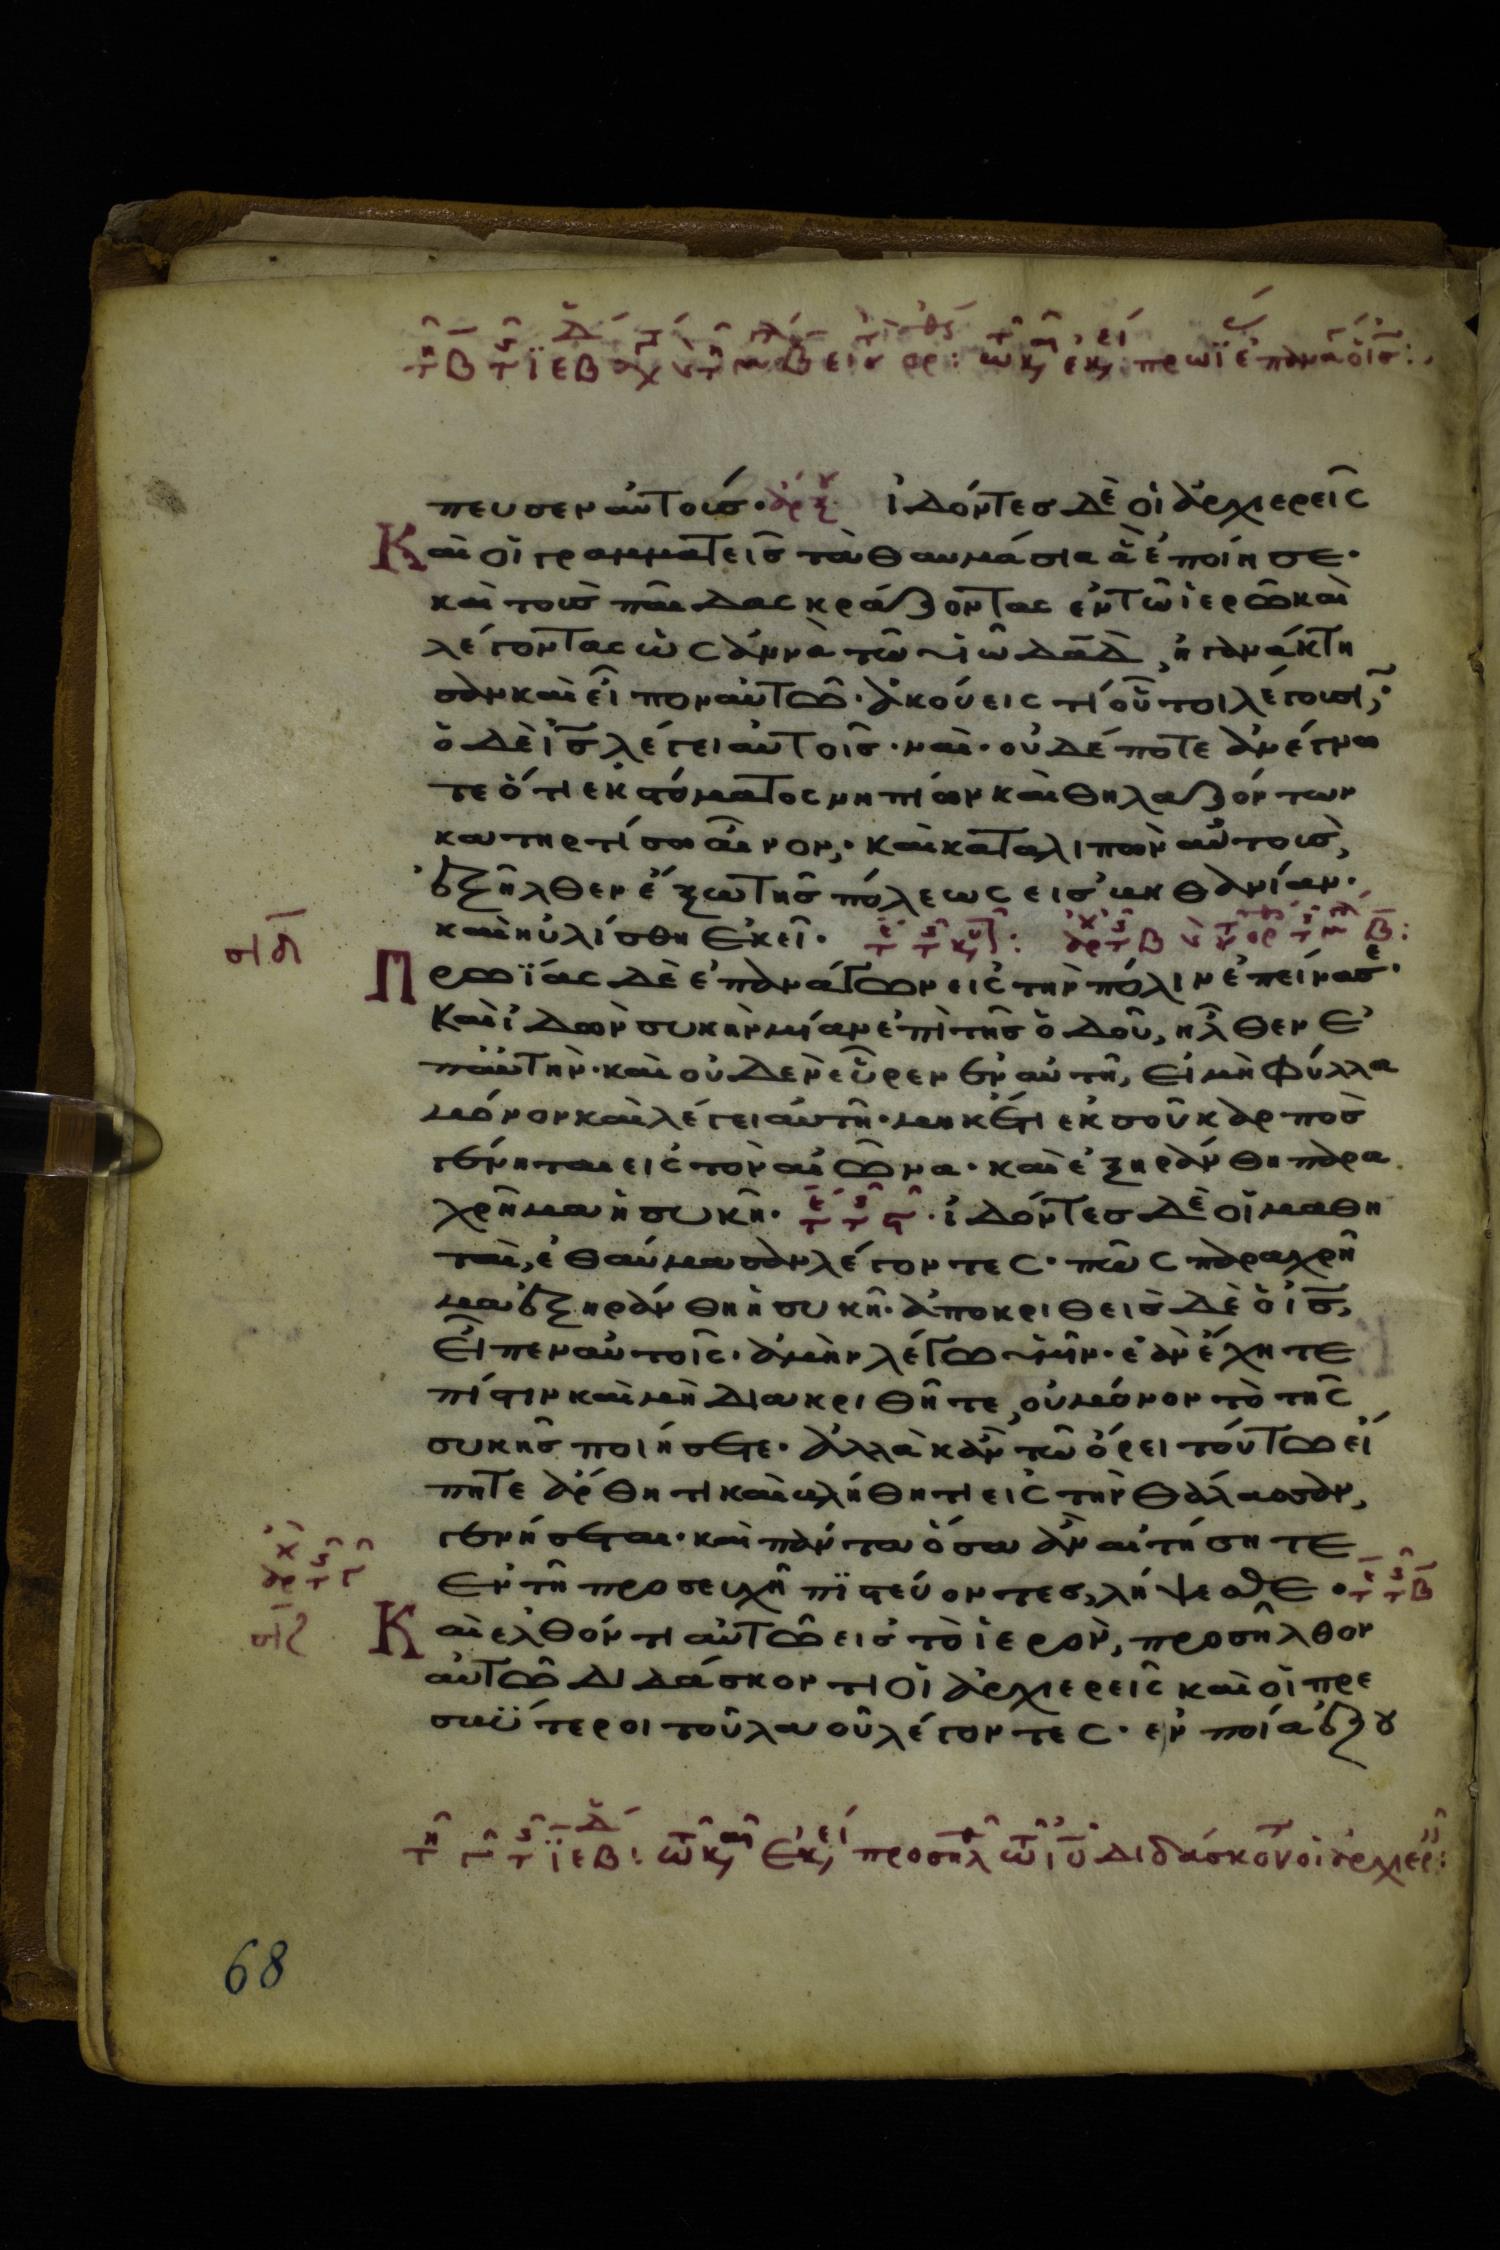 πευσεν αὐτούς· ἰδόντες δὲ οἱ ἀρχιερεῖς
Καὶ οἱ γραμματεῖς τὰ θαυμάσια ἃ ἐποίησε·
καὶ τοὺς παῖδας κράζοντας ἐν τῶ ἱερῶ καὶ
λέγοντας ὡσἀννὰ τῶ υἱῶ δαδ, ἠγανάκτη
σαν καὶ εἶπον αὐτῶ· ἀκούεις τί οὗτοι λέγουσι;
ὁ δὲ ις λέγει αὐτοῖς· ναὶ· οὐδέποτε ἀνέγνω
τε ὅτι ἐκ στόματος νηπίων καὶ θηλαζόντων
κατηρτίσω αἶνον· καὶ καταλιπὼν αὐτοὺς,
ἐξῆλθεν ἔξω τῆς πόλεως εἰς βηθανίαν·
καὶ ηὐλίσθη ἐκεῖ·
Πρωΐας δὲ ἐπανάγων εἰς τὴν πόλιν ἐπείνασε·
Καὶ ἰδὼν συκὴν μίαν ἐπὶ τῆς ὁδοῦ, ἦλθεν ἐ
π' αὐτὴν· καὶ οὐδὲν εὗρεν ἐν αὐτῆ, εἰ μὴ φύλλα
μόνον καὶ λέγει αὐτῆ· μηκέτι ἐκ σοῦ καρπὸς
γένηται εἰς τὸν αἰῶνα· καὶ ἐξηράνθη παρα
χρῆμα ἡ συκῆ· ἰδόντες δὲ οἱ μαθη
ταὶ, ἐθαύμασαν λέγοντες· πῶς παραχρῆ
μα ἐξηράνθη ἡ συκῆ· ἀποκριθεὶς δὲ ὁ ις,
εἶπεν αὐτοῖς· ἀμὴν λέγω ὑμῖν· ἐὰν ἔχητε
πίστιν καὶ μὴ διακριθῆτε, οὐ μόνον τὸ τῆς
συκῆς ποιήσετε· ἀλλὰ κἂν τῶ ὄρει τούτω εἴ
πητε ἄρθητι καὶ βλήθητι εἰς τὴν θάλασσαν,
γενήσεται· καὶ πάντα ὅσα ἂν αἰτήσητε
ἐν τῆ προσευχῆ πϊστεύοντες, λήψεσθε·
Καὶ ἐλθόντι αὐτῶ εἰς τὸ ἱερὸν, προσῆλθον
αὐτῶ διδάσκοντι οἱ ἀρχιερεῖς καὶ οἱ πρε
σβύτεροι τοῦ λαοῦ λέγοντες· ἐν ποία ἐξου
68